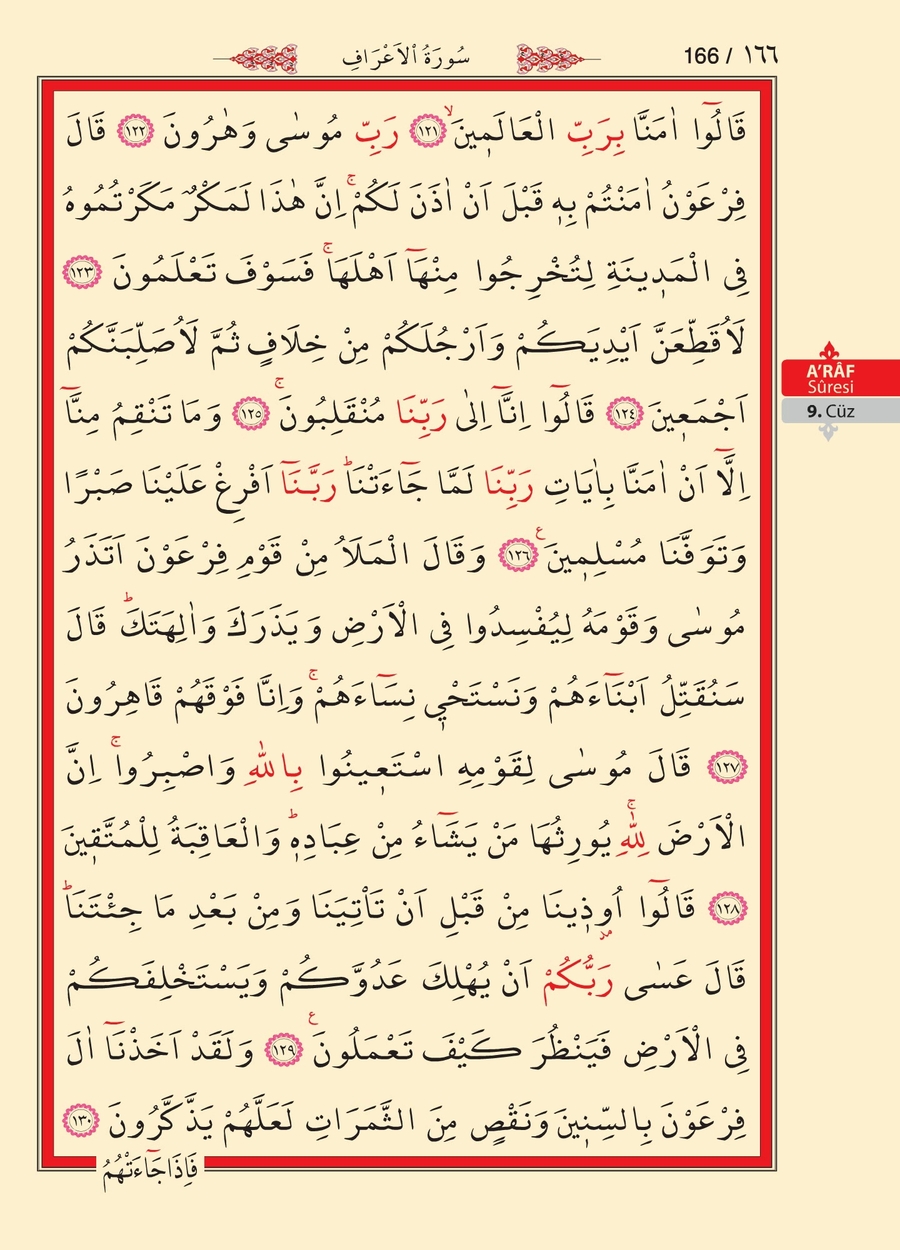 166 / ١٦٦
سُورَةُ الْاَعْرَافِ
قَالُٓوا اٰمَنَّا بِرَبِّ الْعَالَم۪ينَۙ ﴿١٢١﴾ رَبِّ مُوسٰى وَهٰرُونَ ﴿١٢٢﴾ قَالَ
فِرْعَوْنُ اٰمَنْتُمْ بِه۪ قَبْلَ اَنْ اٰذَنَ لَكُمْۚ اِنَّ هٰذَا لَمَكْرٌ مَكَرْتُمُوهُ
فِي الْمَد۪ينَةِ لِتُخْرِجُوا مِنْهَٓا اَهْلَهَاۚ فَسَوْفَ تَعْلَمُونَ ﴿١٢٣﴾
لَاُقَطِّعَنَّ اَيْدِيَكُمْ وَاَرْجُلَكُمْ مِنْ خِلَافٍ ثُمَّ لَاُصَلِّبَنَّكُمْ
اَجْمَع۪ينَ ﴿١٢٤﴾ قَالُٓوا اِنَّٓا اِلٰى رَبِّنَا مُنْقَلِبُونَۚ ﴿١٢٥﴾ وَمَا تَنْقِمُ مِنَّٓا
اِلَّٓا اَنْ اٰمَنَّا بِاٰيَاتِ رَبِّنَا لَمَّا جَٓاءَتْنَاۜ رَبَّنَٓا اَفْرِغْ عَلَيْنَا صَبْرًا
وَتَوَفَّنَا مُسْلِم۪ينَ۟ ﴿١٢٦﴾ وَقَالَ الْمَلَاُ مِنْ قَوْمِ فِرْعَوْنَ اَتَذَرُ
مُوسٰى وَقَوْمَهُ لِيُفْسِدُوا فِي الْاَرْضِ وَيَذَرَكَ وَاٰلِهَتَكَۜ قَالَ
سَنُقَتِّلُ اَبْنَٓاءَهُمْ وَنَسْتَحْي۪ نِسَٓاءَهُمْۚ وَاِنَّا فَوْقَهُمْ قَاهِرُونَ
﴿١٢٧﴾ قَالَ مُوسٰى لِقَوْمِهِ اسْتَع۪ينُوا بِاللّٰهِ وَاصْبِرُواۚ اِنَّ
الْاَرْضَ لِلّٰهِۚ يُورِثُهَا مَنْ يَشَٓاءُ مِنْ عِبَادِه۪ۜ وَالْعَاقِبَةُ لِلْمُتَّق۪ينَ
﴿١٢٨﴾ قَالُٓوا اُو۫ذ۪ينَا مِنْ قَبْلِ اَنْ تَأْتِيَنَا وَمِنْ بَعْدِ مَا جِئْتَنَاۜ
قَالَ عَسٰى رَبُّكُمْ اَنْ يُهْلِكَ عَدُوَّكُمْ وَيَسْتَخْلِفَكُمْ
فِي الْاَرْضِ فَيَنْظُرَ كَيْفَ تَعْمَلُونَ۟ ﴿١٢٩﴾ وَلَقَدْ اَخَذْنَٓا اٰلَ
فِرْعَوْنَ بِالسِّن۪ينَ وَنَقْصٍ مِنَ الثَّمَرَاتِ لَعَلَّهُمْ يَذَّكَّرُونَ ﴿١٣٠﴾
فَاِذَا جَٓاءَتْهُمُ
A'RÂF
Sûresi
9. Cüz